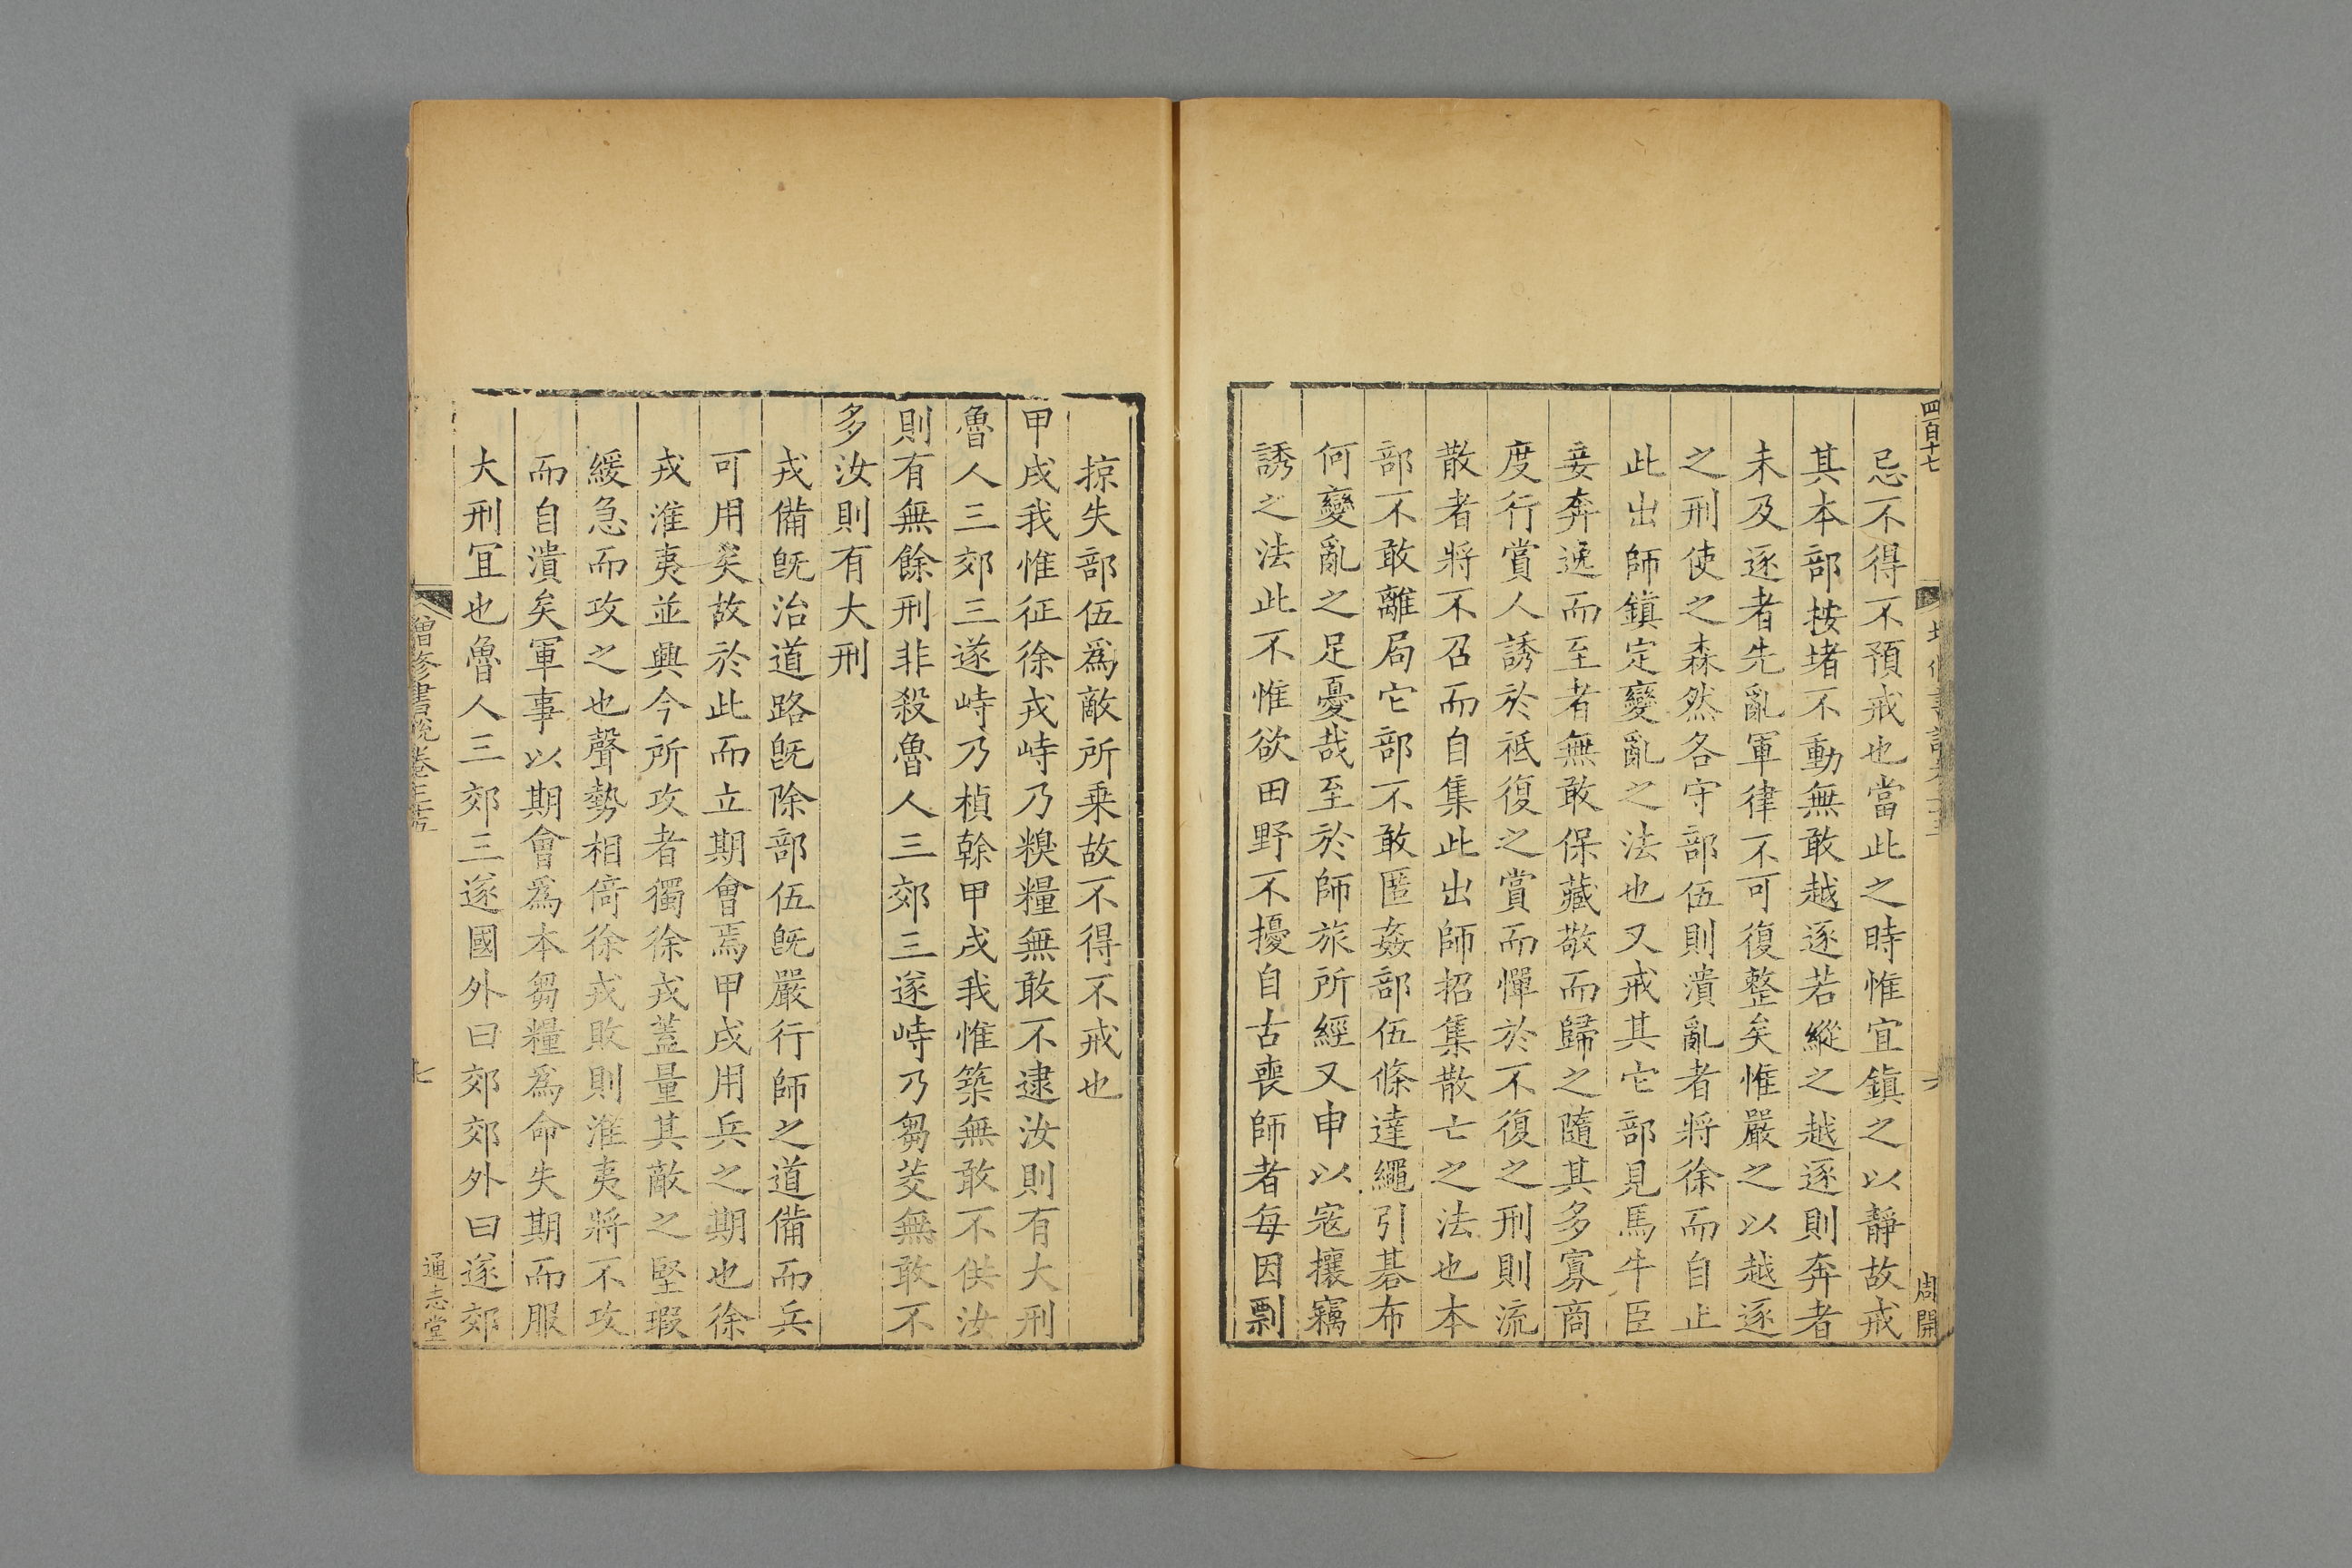 四百十七
周開
忌不得不預戒也當此之時惟宜鎮之以靜故戒
其本部按堵不動無敢越逐若縱之越逐則奔者
未及逐者先亂軍律不可復整矣惟嚴之以越逐
之刑使之森然各守部伍則潰亂者將徐而自止
此出師鎮定變亂之法也又戒其它部見馬牛臣
妾奔逸而至者無敢保藏敬而歸之隨其多寡商
度行賞人誘於祗復之賞而憚於不復之刑則流
散者將不召而自集此出師招集散亡之法也本
部不敢離局它部不敢匿姦部伍條達繩引碁布
何變亂之足憂哉至於師旅所經又申以寇攘竊
誘之法此不惟欲田野不擾自古喪師者每因剽
掠失部伍爲敵所乗故不得不戒也
甲戌我惟征徐戎峙乃糗糧無敢不逮汝則有大刑
魯人三郊三遂峙乃楨榦甲戌我惟築無敢不供汝
則有無餘刑非殺魯人三郊三遂峙乃芻茭無敢不
多汝則有大刑
戎備旣治道路旣除部伍旣嚴行師之道備而兵
可用矣故於此而立期會焉甲戌用兵之期也徐
戎淮夷並興今所攻者獨徐戎蓋量其敵之堅瑕
緩急而攻之也聲勢相倚徐戎敗則淮夷將不攻
而自潰矣軍事以期會爲本芻糧爲命失期而服
大刑宜也魯人三郊三遂國外曰郊郊外曰遂郊
增修書說卷三十五
七
通志堂